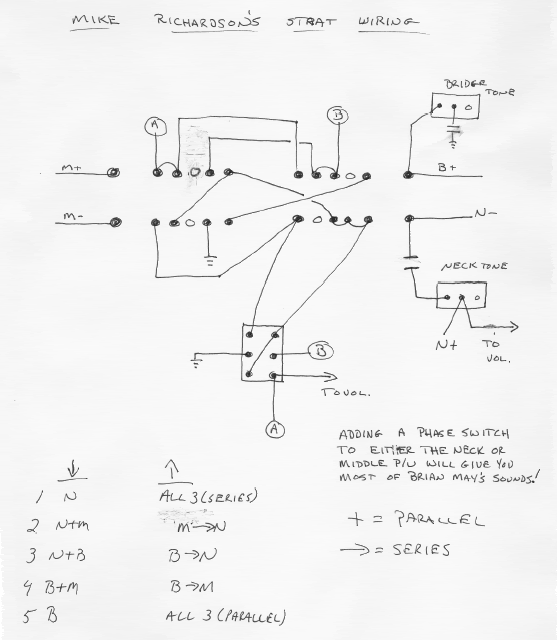 MIKE RICHARDSON'S STRAT WIRING
BRIDGE TONE
A
B
M+
B+
M-
N-
NECK TONE
N+
TO VOL.
B
TO VOL.
A
ADDING A PHASE SWITCH
TO EITHER THE NECK OR
MIDDLE P/U WILL GIVE YOU
MOST OF BRIAN MAY'S SOUNDS!
+ = PARALLEL
→ = SERIES
↓ ↑
1 N ALL 3 (SERIES)
2 N+M M→N
3 N+B B→N
4 B+M B→M
5 B ALL 3 (PARALLEL)